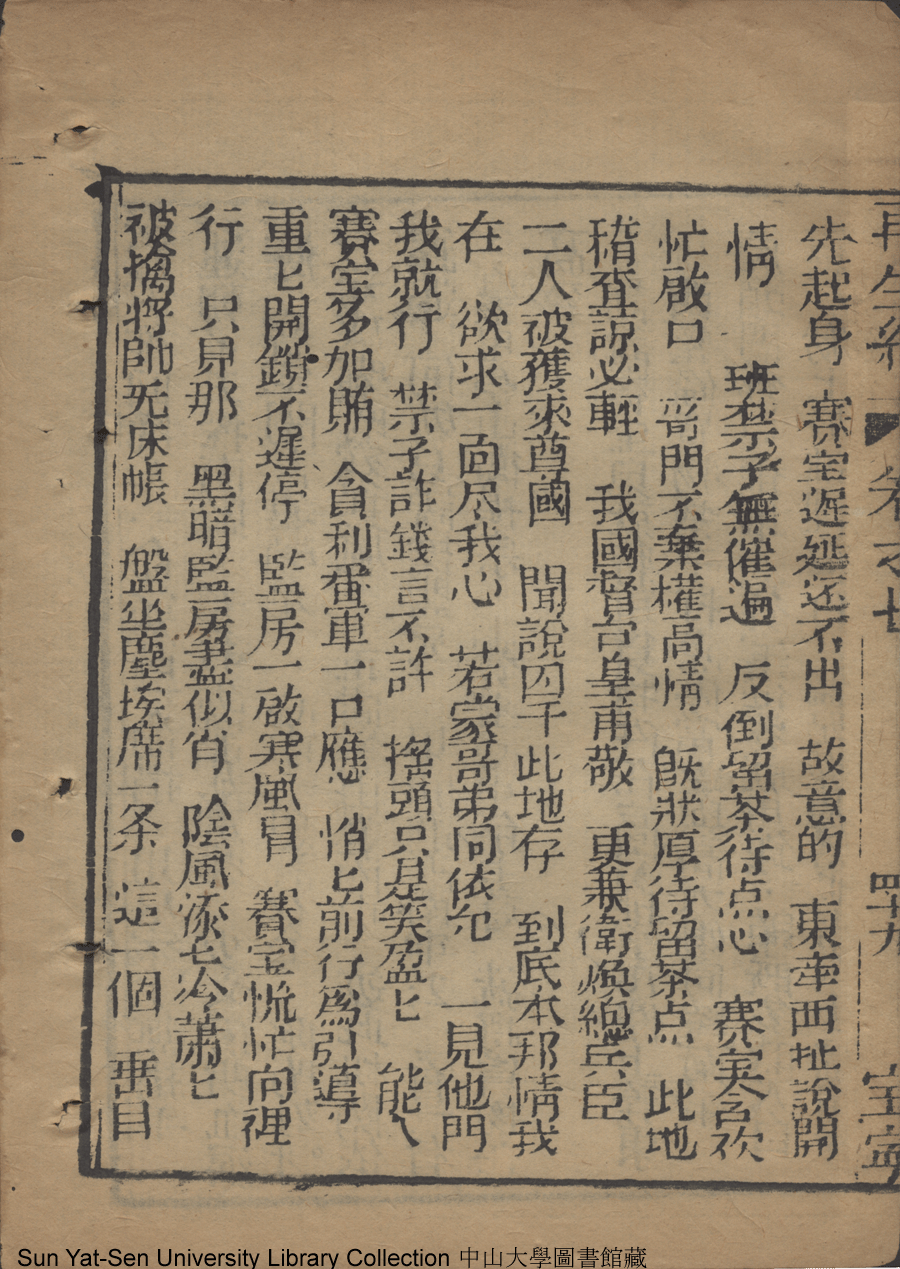 再生 宝寧
先起身 賽宝遲延还不出 故意的 東牽西扯說開
情 班禁子無催逼 反倒留茶待点心 賽宝含欢
忙啟口 哥門不棄權高情 既狀厚待留茶点 此地
稽查諒必輕 我國督台皇甫敬 更兼衛煥總兵臣
二人被獲來尊國 聞說囚于此地存 到底本邦情我
在 欲求一面尽我心 若蒙哥弟同依允 一見他門
我就行 禁子詐錢言不許 搖頭只是笑盈匕 能人
賽宝多加賄 貪利番軍一口應 悄匕前行爲引導
重匕開鎖不遲停 監房一啟寒風冒 賽宝慌忙向裡
行 只見那 黑暗監房盡似宵 陰風 冷蕭匕
被擒將帥无床帳 盤坐塵埃席一条 這一個 垂目
Sun Yat-Sen University Library Collection 中山大學圖書館藏